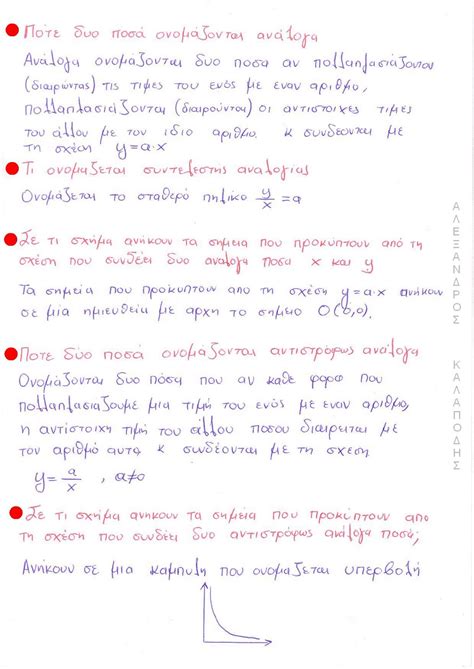 Πότε δυο ποσά ονομάζονται ανάλογα
Ανάλογα ονομάζονται δυο ποσα αν πολλαπλασιάζοντας
(διαιρώντας) τις τιμες του ενός με εναν αριθμο,
πολλαπλασιάζονται (διαιρούνται) οι αντιστοιχες τιμες
του άλλου με τον ιδιο αριθμο. κ συνδεονται με
τη σχέση y=a·x
Τι ονομαζεται συντελεστης αναλογιας
Ονομάζεται το σταθερό πηλικο y/x = a
Σε τι σχήμα ανήκουν τα σημεια που προκύπτουν από τη
σχέση που συνδέει δυο αναλογα ποσα x και y
Τα σημεία που προκυπτουν απο τη σχεση y=a·x ανήκουν
σε μια ημιευθεία με αρχη το σημειο O(0,0).
Ποτε δύο ποσά ονομάζονται αντιστρόφως ανάλογα
Ονομάζονται δυο πόσα που αν καθε φορα που
πολλαπλασιαζουμε μια τιμή του ενος με εναν αριθμο,
η αντίστοιχη τιμή του άλλου ποσου διαιρειται με
τον αριθμο αυτο, κ συνδέονται με τη σχεση
y = a/x , a≠0
Σε τι σχήμα ανηκουν τα σημεία που προκύπτουν απο
τη σχέση που συνδέει δυο αντιστρόφως ανάλογα ποσά;
Ανήκουν σε μια καμπυλη που ονομαζεται υπερβολή
ΑΛΕΞΑΝΔΡΟΣ ΚΑΛΑΠΟΔΗΣ